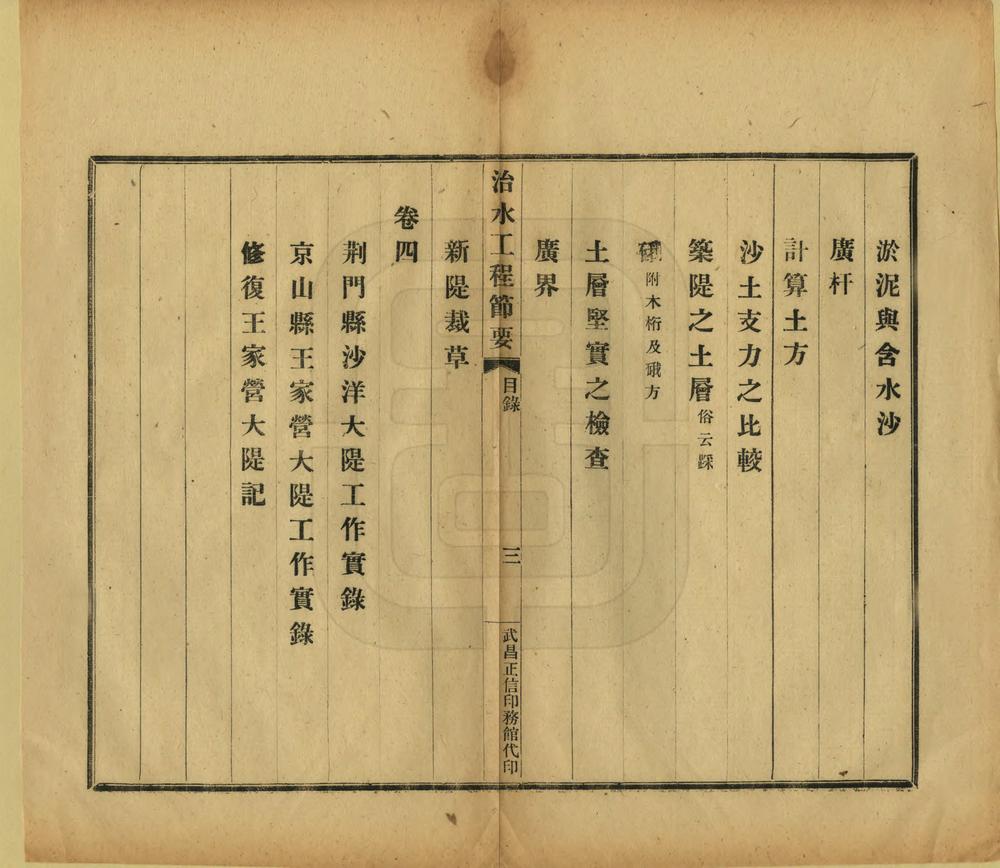 淤泥與含水沙
廣杆
計算土方
沙土支力之比較
築隄之土層俗云踩
附木桁及硪方
土層堅實之檢查
廣界
治水工程節要
目錄
三
武昌正信印務館代印
新隄裁草
卷四
荆門縣沙洋大隄工作實錄
京山縣王家營大隄工作實錄
修復王家營大隄記